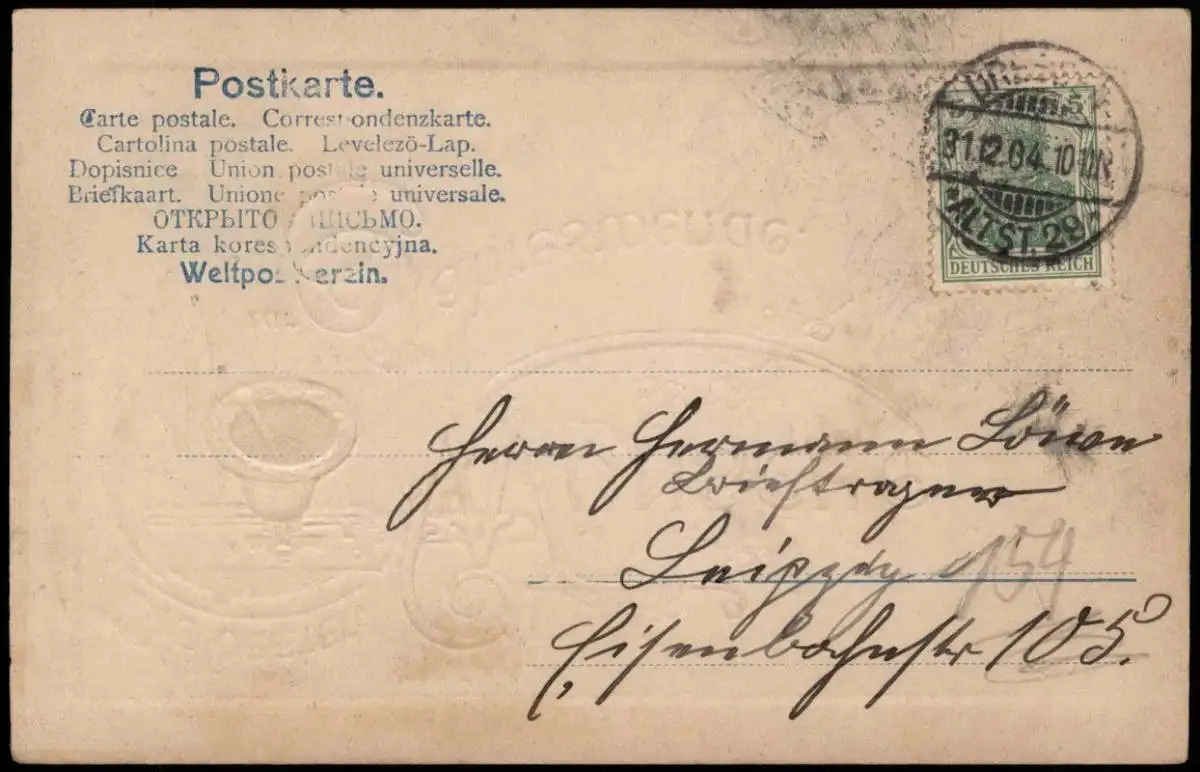 Postkarte.
Carte postale. Correspondenzkarte.
Cartolina postale. Levelező-Lap.
Dopisnice Union postale universelle.
Briefkaart. Unione postale universale.
ОТКРЫТОЕ ПИСЬМО.
Karta korespondencyjna.
Weltpostverein.
DRESDEN
5 5
31.12.04. 10-11N.
*ALTST. 29*
DEUTSCHES REICH
Herrn Hermann Löwe
Briefträger
Leipzig
154
Eisenbahnstr 105.